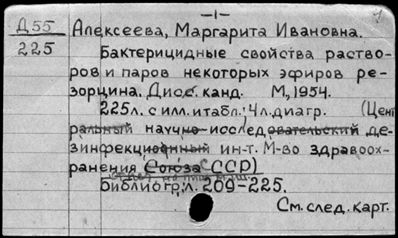 -1-
Д55
225
Алексеева, Маргарита Ивановна.
Бактерицидные свойства раство-
ров и паров некоторых эфиров ре-
зорцина. Дисс. канд. М, 1954.
225л. с илл. и табл.; 4л. диагр. (Цент
ральный научно-исследовательский де-
зинфекционный ин-т. М-во здравоох-
ранения Союза ССР)
Библиогр; л. 209-225.
См. след. карт.